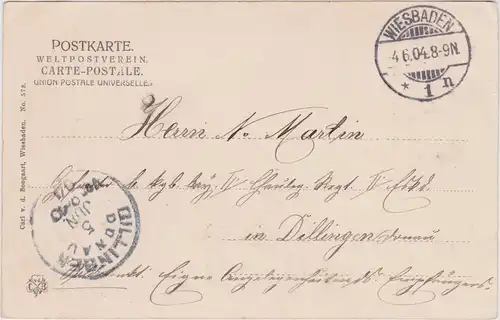 POSTKARTE.
WELTPOSTVEREIN.
CARTE-POSTALE.
UNION POSTALE UNIVERSELLE.
WIESBADEN
4.6.04.8-9N.
* 1 n
Carl v. d. Boogaart, Wiesbaden. No. 578.
Herrn N. Martin
b. kgl. bay. Regt.
in Dillingen Donau
DILLINGEN
DONAU
5
JUN
Eigne Angelegenheit des Empfängers.